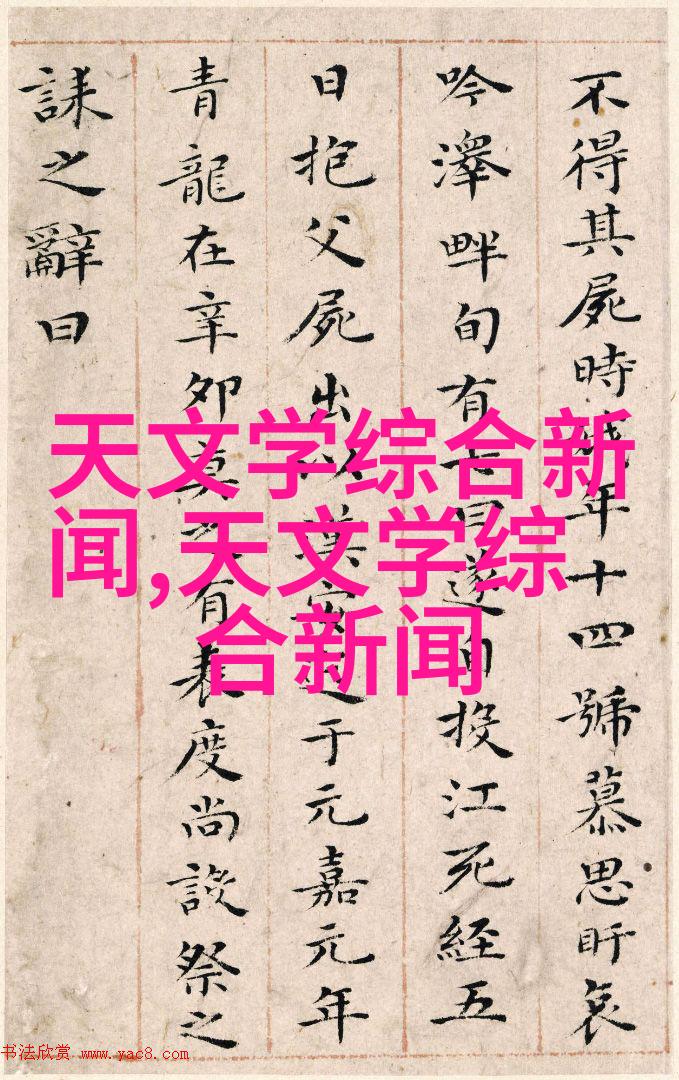 不得其屍時娥年十四號慕思盱哀
吟澤畔旬有七日遂自投江死經五
日抱父屍出以漢安迄于元嘉元年
青龍在辛卯莫之有表度尚設祭之
誄之辭曰
天文学综合新
闻,天文学综
合新闻
书法欣赏 www.yac8.com